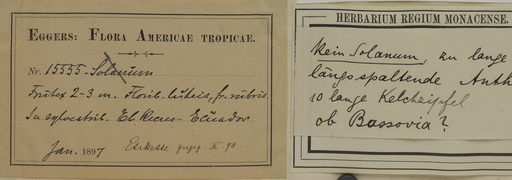 EGGERS: FLORA AMERICAE TROPICAE.
Nr. 15555. Solanum
Frutex 2-3 m. Florib. luteis, fr. rubris.
In sylvestrib. El Recreo - Ecuador
Jan. 1897
Etikette III 98.
HERBARIUM REGIUM MONACENSE.
Kein Solanum, zu lange
längsspaltende Anth
so lange Kelchzipfel
ob Bassovia?